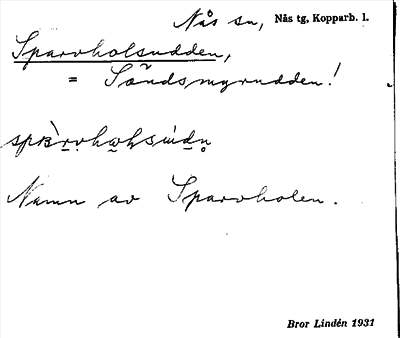 Nås sn, Nås tg, Kopparb. l.
Sparvholsudden,
= Sandsmyrudden!
Namn av Sparvholen.
Bror Lindén 1931